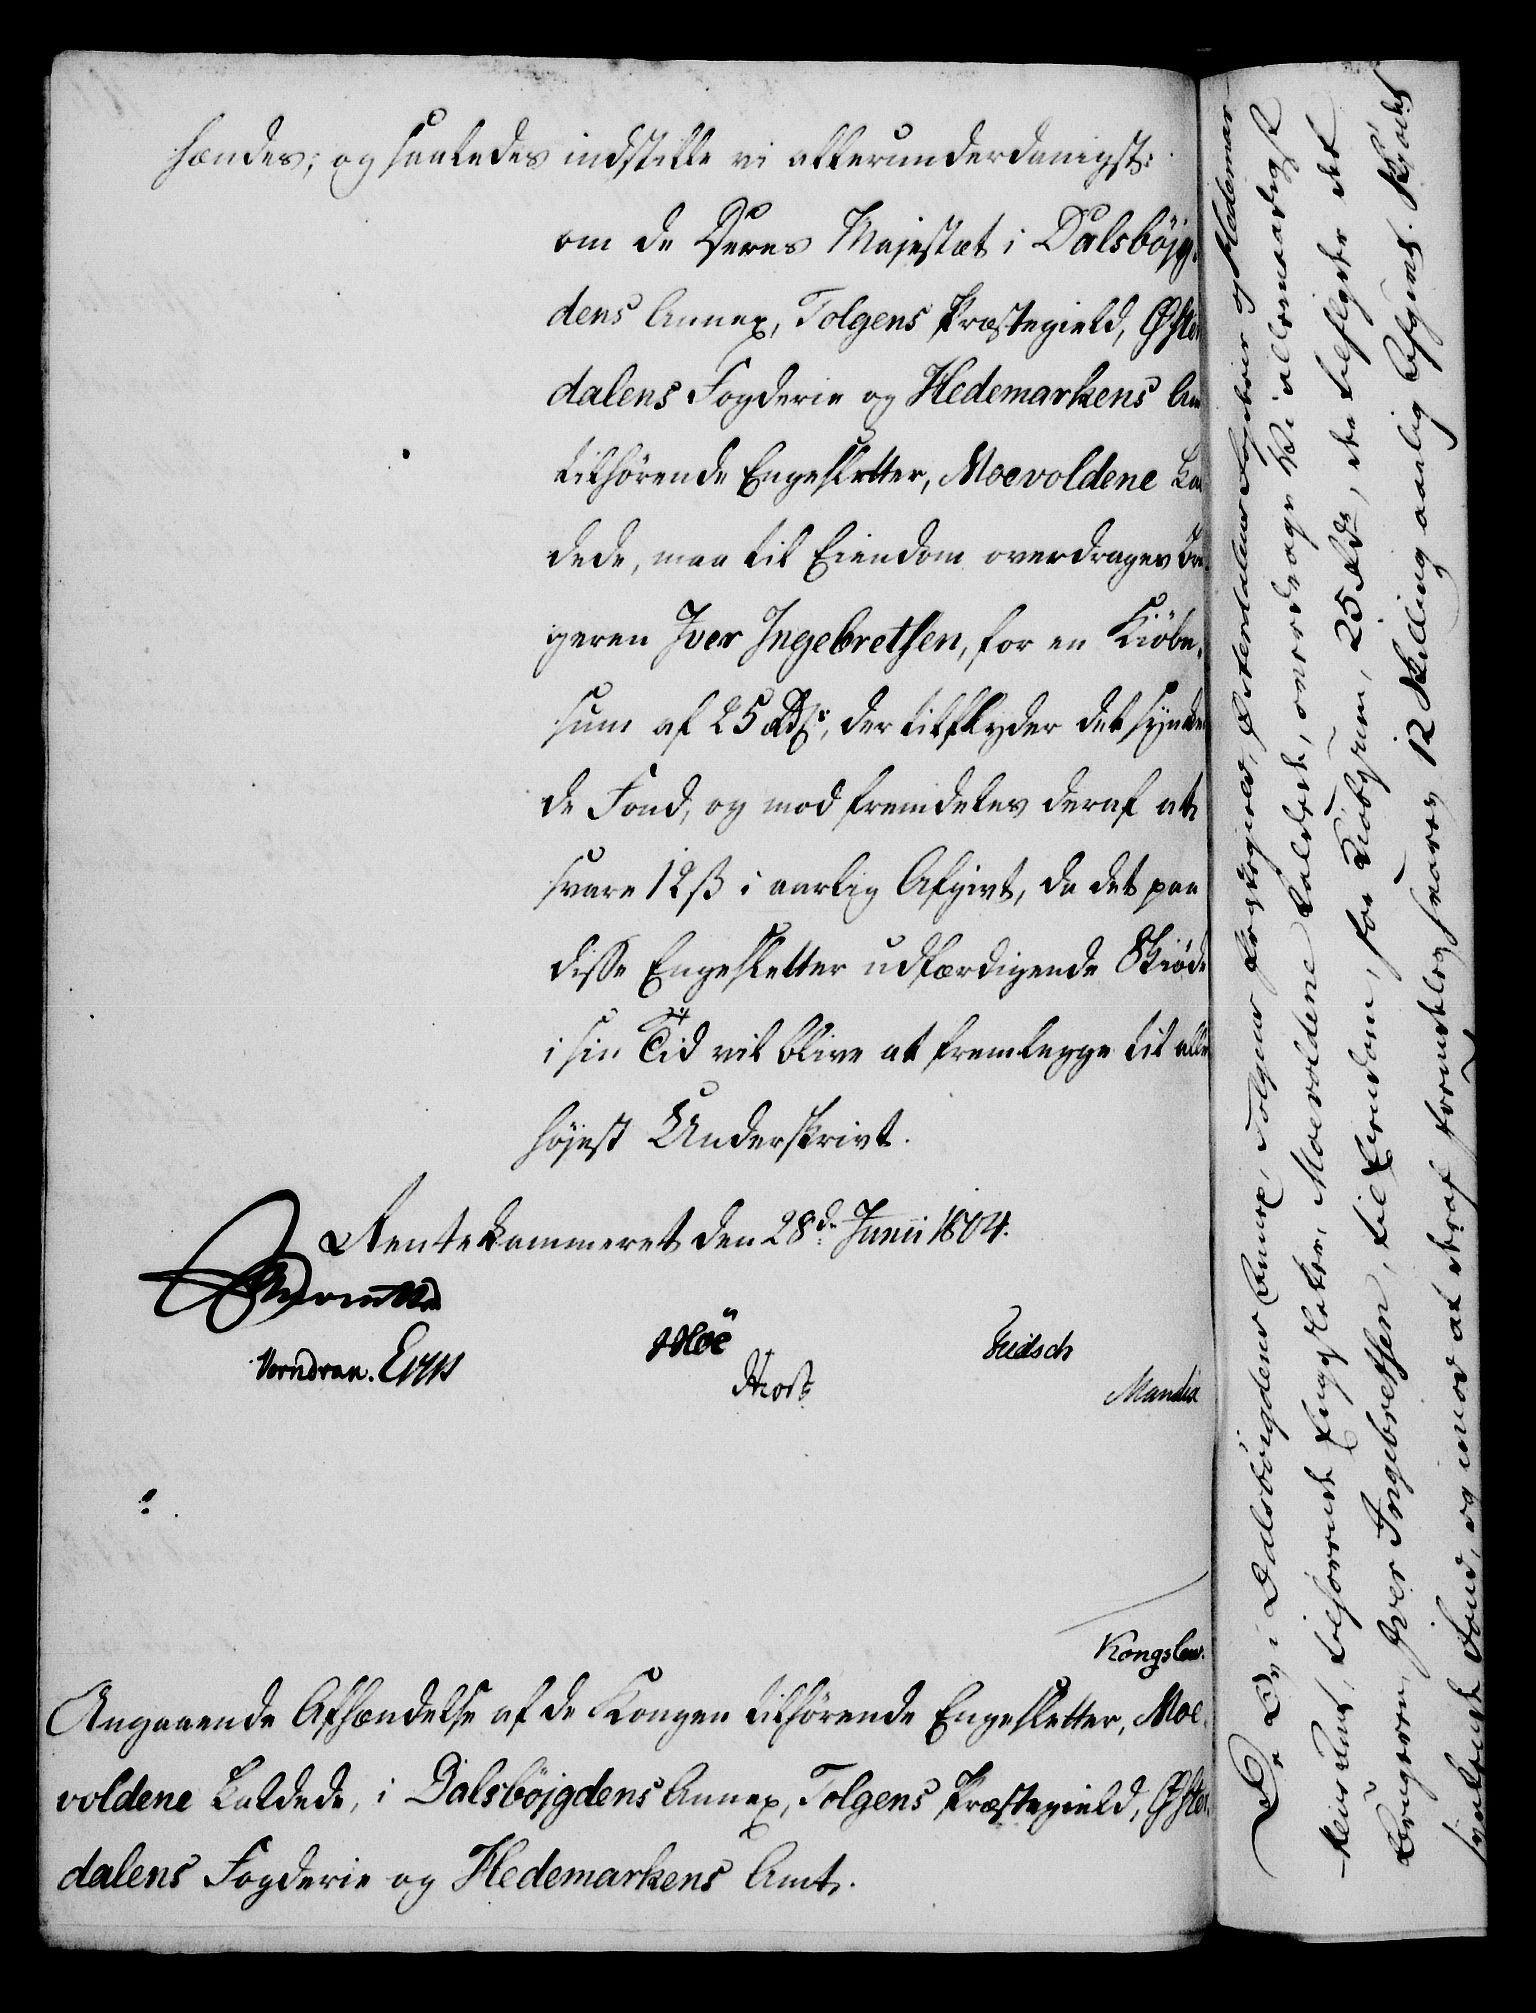 hændes; og saaledes indstille vi allerunderdanigst:
om de Deres Majestæt i Dalsbøjg-
dens Annex, Tolgens Præstegield, Øster
dalens Fogderie og Hedemarkens Am
tilhørende Engesletter, Moevoldene kal
dede, maa til Eiendom overdrages Bru-
geren Iver Ingebretsen, for en Kiøbe-
sum af 25 Rdr, der tilflyder det synken
de Fond, og mod fremdeles deraf at
svare 12 ß i aarlig Afgivt, da det paa
disse Engesletter udfærdigende Skiøde
i sin Tid vil blive at fremlegge til aller
højest Underskrivt.
Rentekammeret den 28de Junii 1804.
Vorndran.
Høst
Kongslew.
Angaaende Afhændelse af de Kongen tilhørende Engesletter, Moe-
voldene kaldede, i Dalsbøjgdens Annex, Tolgens Præstegield, Øster-
dalens Fogderie og Hedemarkens Amt.
De i Dalsbøigdens Annex, Tolgens Præstegield, Østerdalens Fogderie og Hedemar-
kens Amt, tilhørende Engesletter, Moevoldene kaldede, overdrage Vi allernaadigst
Brugeren, Iver Ingebretsen, til Eiendom, for Kiøbesum, 25 Rdr, der tilflyder det
synkende Fond, og mod at deraf fremdeles svares 12 Skilling aarlig Afgivt. Skjødet